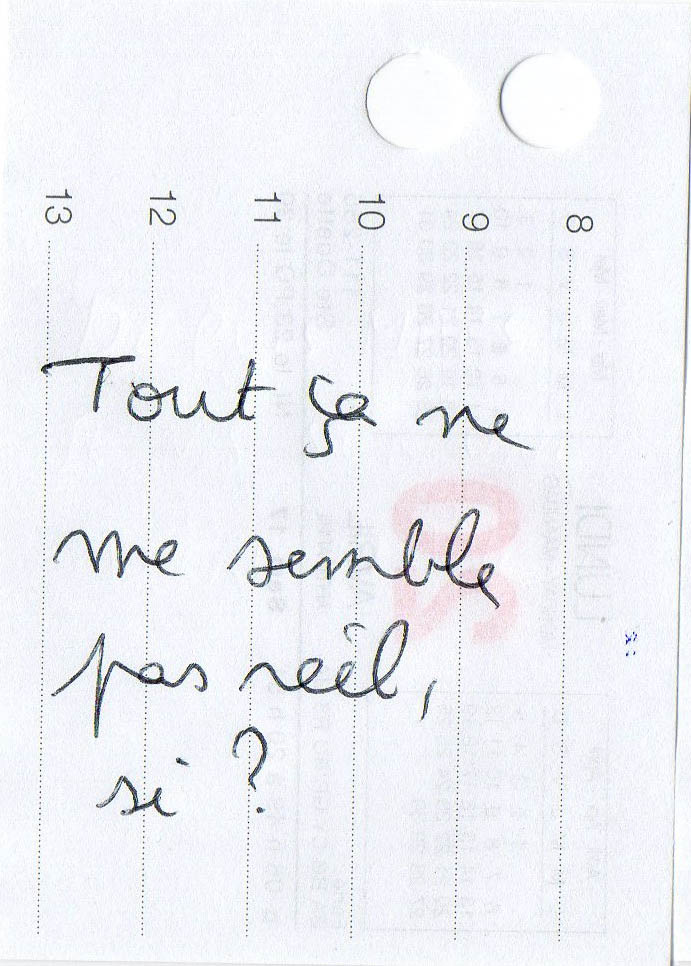 8
9
10
11
12
13
Tout ça ne
me semble
pas réel,
si ?